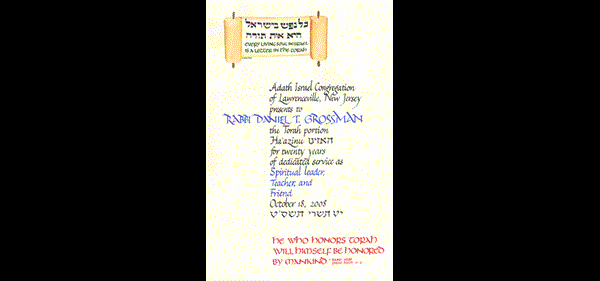 כל נפש בישראל
היא אות תורה
EVERY LIVING SOUL IN ISRAEL
IS A LETTER IN THE TORAH
Adath Israel Congregation
of Lawrenceville, New Jersey
presents to
RABBI DANIEL T. GROSSMAN
the Torah portion
Ha'azinu האזינו
for twenty years
of dedicated service as
Spiritual leader,
Teacher, and
Friend
October 18, 2008
יט תשרי תשס"ט
HE WHO HONORS TORAH
WILL HIMSELF BE HONORED
BY MANKIND